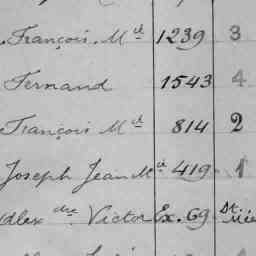 François M^d 1239 3
Fernand 1543 4
François M^d 814 2
Joseph Jean M^d 419 1
Alex^dre Victor Ex. 69 St.